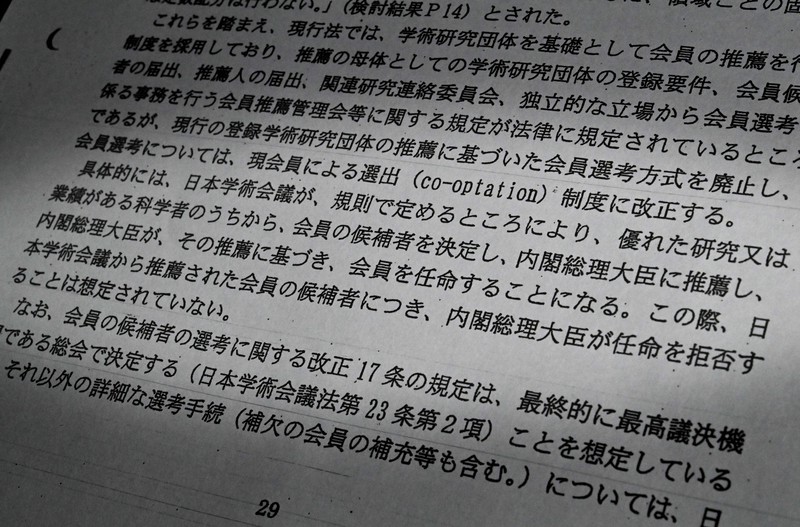 行わない。」(検討結果P14)とされた。
これらを踏まえ、現行法では、学術研究団体を基礎として会員の推薦を行
制度を採用しており、推薦の母体としての学術研究団体の登録要件、会員候
者の届出、推薦人の届出、関連研究連絡委員会、独立的な立場から会員選考
係る事務を行う会員推薦管理会等に関する規定が法律に規定されているところ
であるが、現行の登録学術研究団体の推薦に基づいた会員選考方式を廃止し、
会員選考については、現会員による選出(co-optation)制度に改正する。
具体的には、日本学術会議が、規則で定めるところにより、優れた研究又は
業績がある科学者のうちから、会員の候補者を決定し、内閣総理大臣に推薦し、
内閣総理大臣が、その推薦に基づき、会員を任命することになる。この際、日
本学術会議から推薦された会員の候補者につき、内閣総理大臣が任命を拒否す
ることは想定されていない。
なお、会員の候補者の選考に関する改正17条の規定は、最終的に最高議決機
である総会で決定する(日本学術会議法第23条第2項)ことを想定している
それ以外の詳細な選考手続(補欠の会員の補充等も含む。)については、日
29